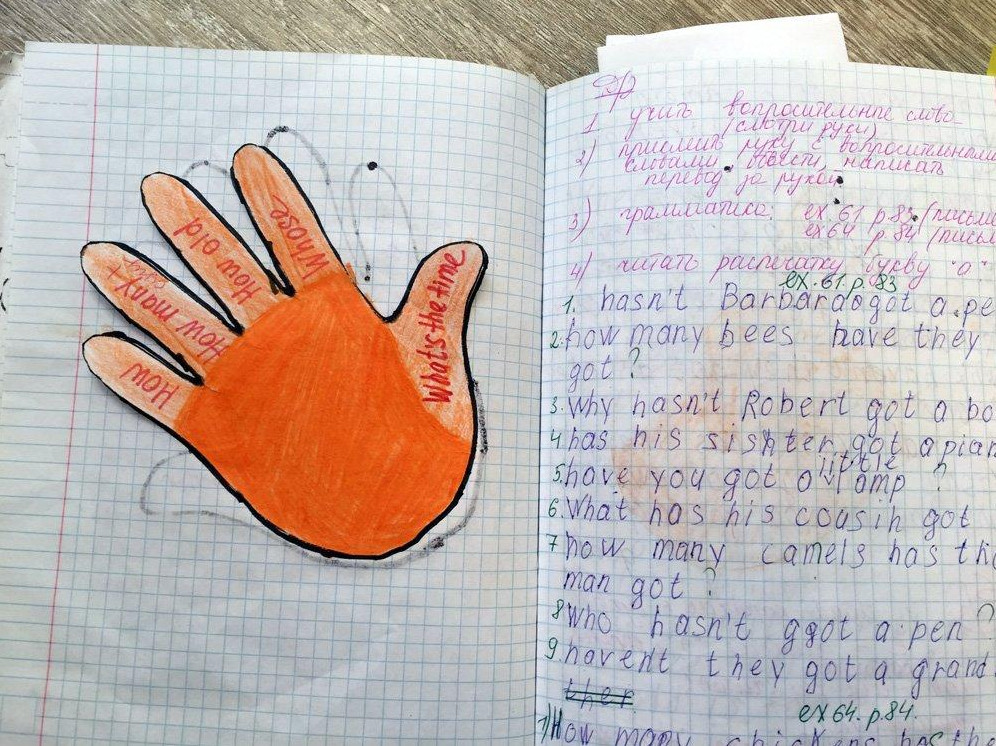 Whose
How old
How many
How
What's the time
Д/р
1 учить вопросительные слова
(смотри руки)
2) приклеить руку с вопросительными
словами, обвести, написать
перевод за рукой
3) грамматика: ex. 61 p. 83 (письм
ex 64 p. 84 (письм
4) читать распечатку букву "о"
ex. 61. p. 83
1. hasn't Barbara got a pe
2. how many bees have they
got ?
3. Why hasn't Robert got a bo
4. has his sishter got a pian
little
5. have you got a lamp ?
6. What has his cousin got
7 how many camels has the
man got ?
8 Who hasn't ggot a pen ?
9. havent they got a grand
ther
ex 64. p. 84.
1) How many chickens has the